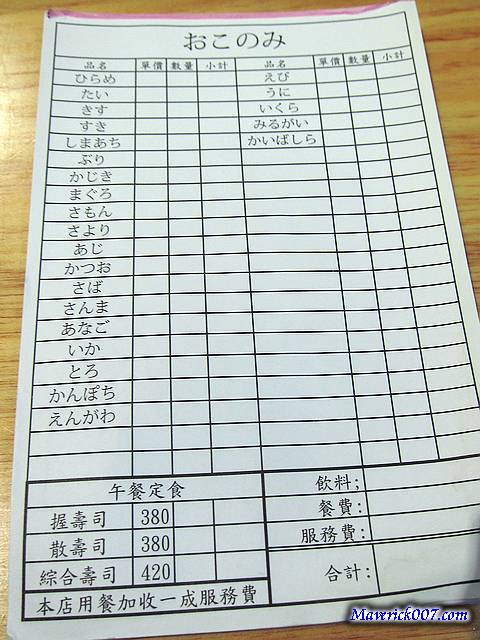 おこのみ
品名 單價 數量 小計 品名 單價 數量 小計
ひらめ えび
たい うに
きす いくら
すき みるがい
しまあち かいばしら
ぶり
かじき
まぐろ
さもん
さより
あじ
かつお
さば
さんま
あなご
いか
とろ
かんぽち
えんがわ
午餐定食
握壽司 380
散壽司 380
綜合壽司 420
本店用餐加收一成服務費
飲料;
餐費:
服務費:
合計:
Maverick007.com